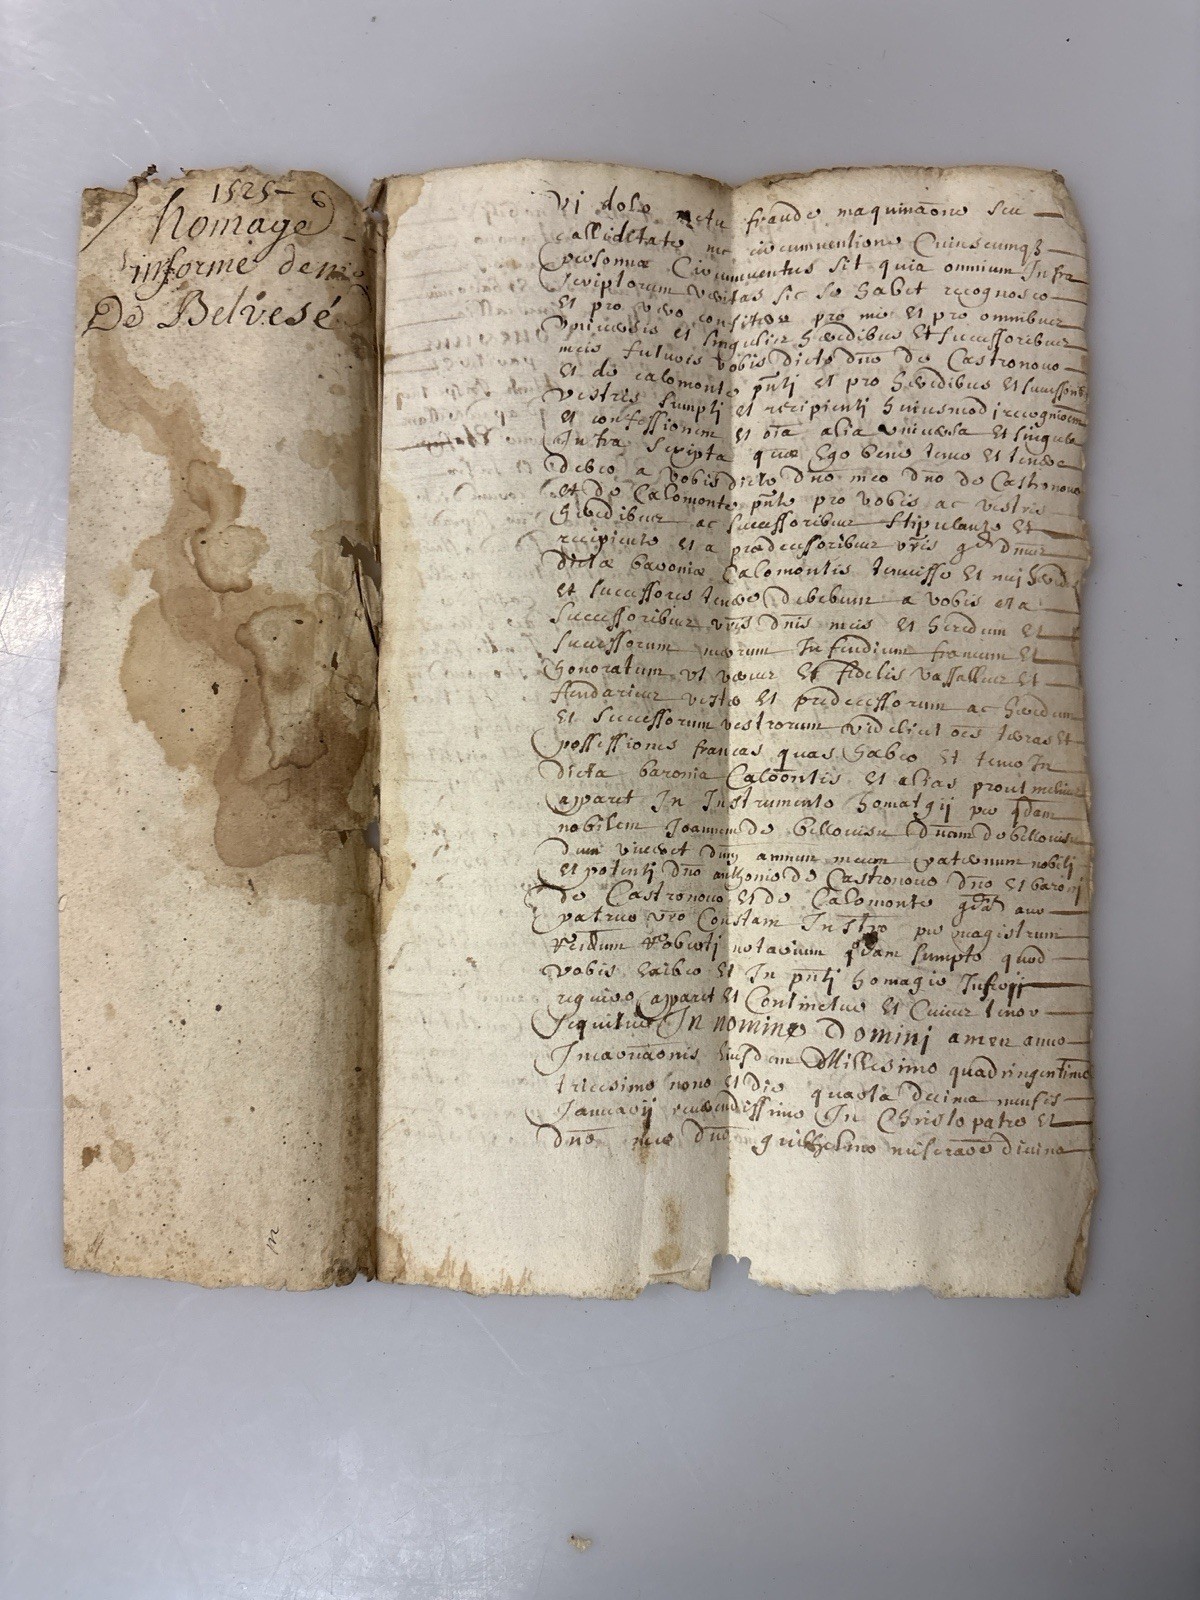 1525
homage
informe de
De Belvesé
Vi dolo metu fraude maquinaõne seu
calliditate nec circumventione Cuiuscumqz
personnæ Circumventus sit quia omnium Infra
scriptorum veritas sic se habet recognosco
Et pro vero confiteor pro me Et pro omnibus
Vniversis et singulis hæredibus Et successoribus
meis futuris vobis dicto dño de Castronovo
Et de calomonte pñti et pro hæredibus Et successoribus
vestris sumpti et recipienti huiusmodi recogniõem
et confessionem et oĩa alia vniversa Et singula
Infra scripta quæ Ego bene teneo Et tenere
debeo a vobis dicto dño meo dño de Castronovo
et de Calomonte pñte pro vobis ac vestris
hæredibus ac successoribus stipulante Et
recipiente et a prædecessoribus vr̃is dnis
dictæ baroniæ Calomontis tenuisse et mei
et successores tenere debebunt a vobis et a
successoribus vr̃is dñis meis et heredum et
successorum meorum In feudum francum Et
honoratum vt verus et fidelis vassallus Et
feudarius vester Et predecessorum ac heredum
et successorum vestrorum videlicet oẽs terras Et
possessiones francas quas habeo et teneo In
dicta baronia Calõontis et alias prout melius
apparet In Instrumento homatgij per qdam
nobilem Joannem de bellovisu dñum de bellovisu
dum viveret avum meum paternum nobili
et potenti dño anthonio de Castronovo dño Et baroni
de Castronovo et de Calomonte avo
patruo vr̃o Constam Instro per magistrum
Roberti notarium qdam sumpto quod
vobis exibeo et In pñti homagio Inseri
requiro apparet Et Continetur Et Cuius tenor
sequitur In nomine Domini amen anno
Incarnãonis Eiusdem Millesimo quadringentimo
tricesimo nono et die quarta decima mensis
Januarij reverendissimo In Christo patre et
dño meo dño guilhelmo miseraõe divina